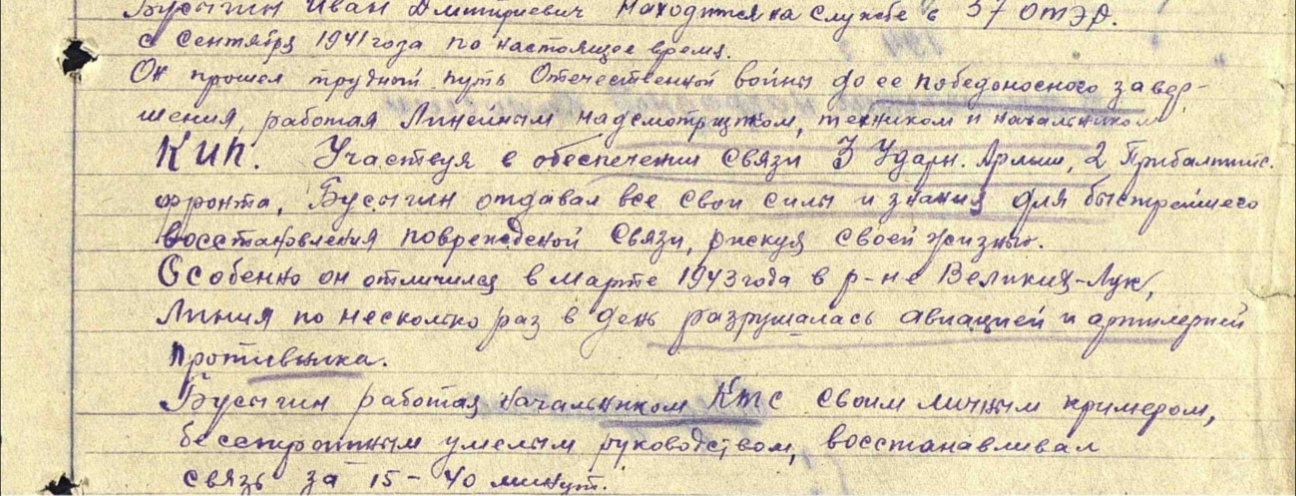 Бусыгин Иван Дмитриевич находится на службе в 37 ОТЭР.
с сентября 1941 года по настоящее время.
Он прошел трудный путь Отечественной войны до ее победоносного завер-
шения, работая Линейным надсмотрщиком, техником и начальником
КИП. Участвуя в обеспечении связи 3 Ударн. Армии, 2 Прибалтийс.
фронта, Бусыгин отдавал все свои силы и знания для быстрейшего
восстановления поврежденой связи, рискуя своей жизнью.
Особенно он отличился в марте 1943 года в р-не Великих-Лук,
Линия по несколько раз в день разрушалась авиацией и артилерией
противника.
Бусыгин работая начальником КТС своим личным примером,
бесстрашным умелым руководством, восстанавливал
связь за 15-40 минут.